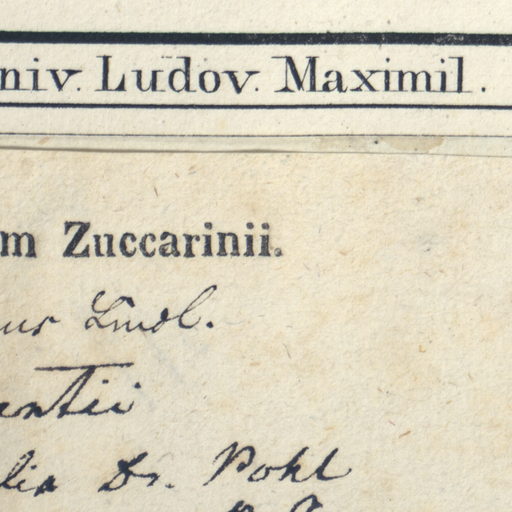 niv. Ludov. Maximil.
m Zuccarinii.
us Lindl.
antii
lia Dr. Pohl